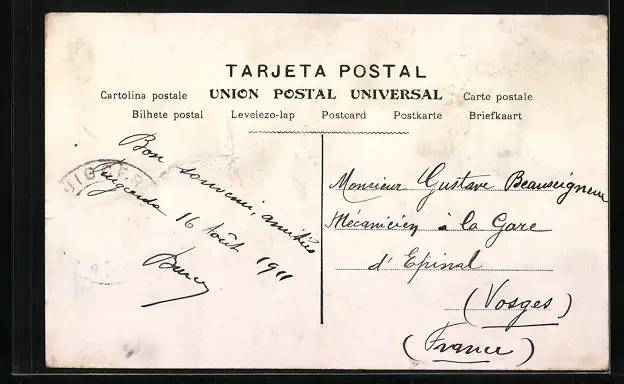 TARJETA POSTAL
Cartolina postale UNION POSTAL UNIVERSAL Carte postale
Bilhete postal Levelezo-lap Postcard Postkarte Briefkaart
Bon souvenir, amitiés
Puigcerda 16 Août 1911
Monsieur Gustave Beauseigneur
Mécanicien à la Gare
d'Epinal
(Vosges)
(France)